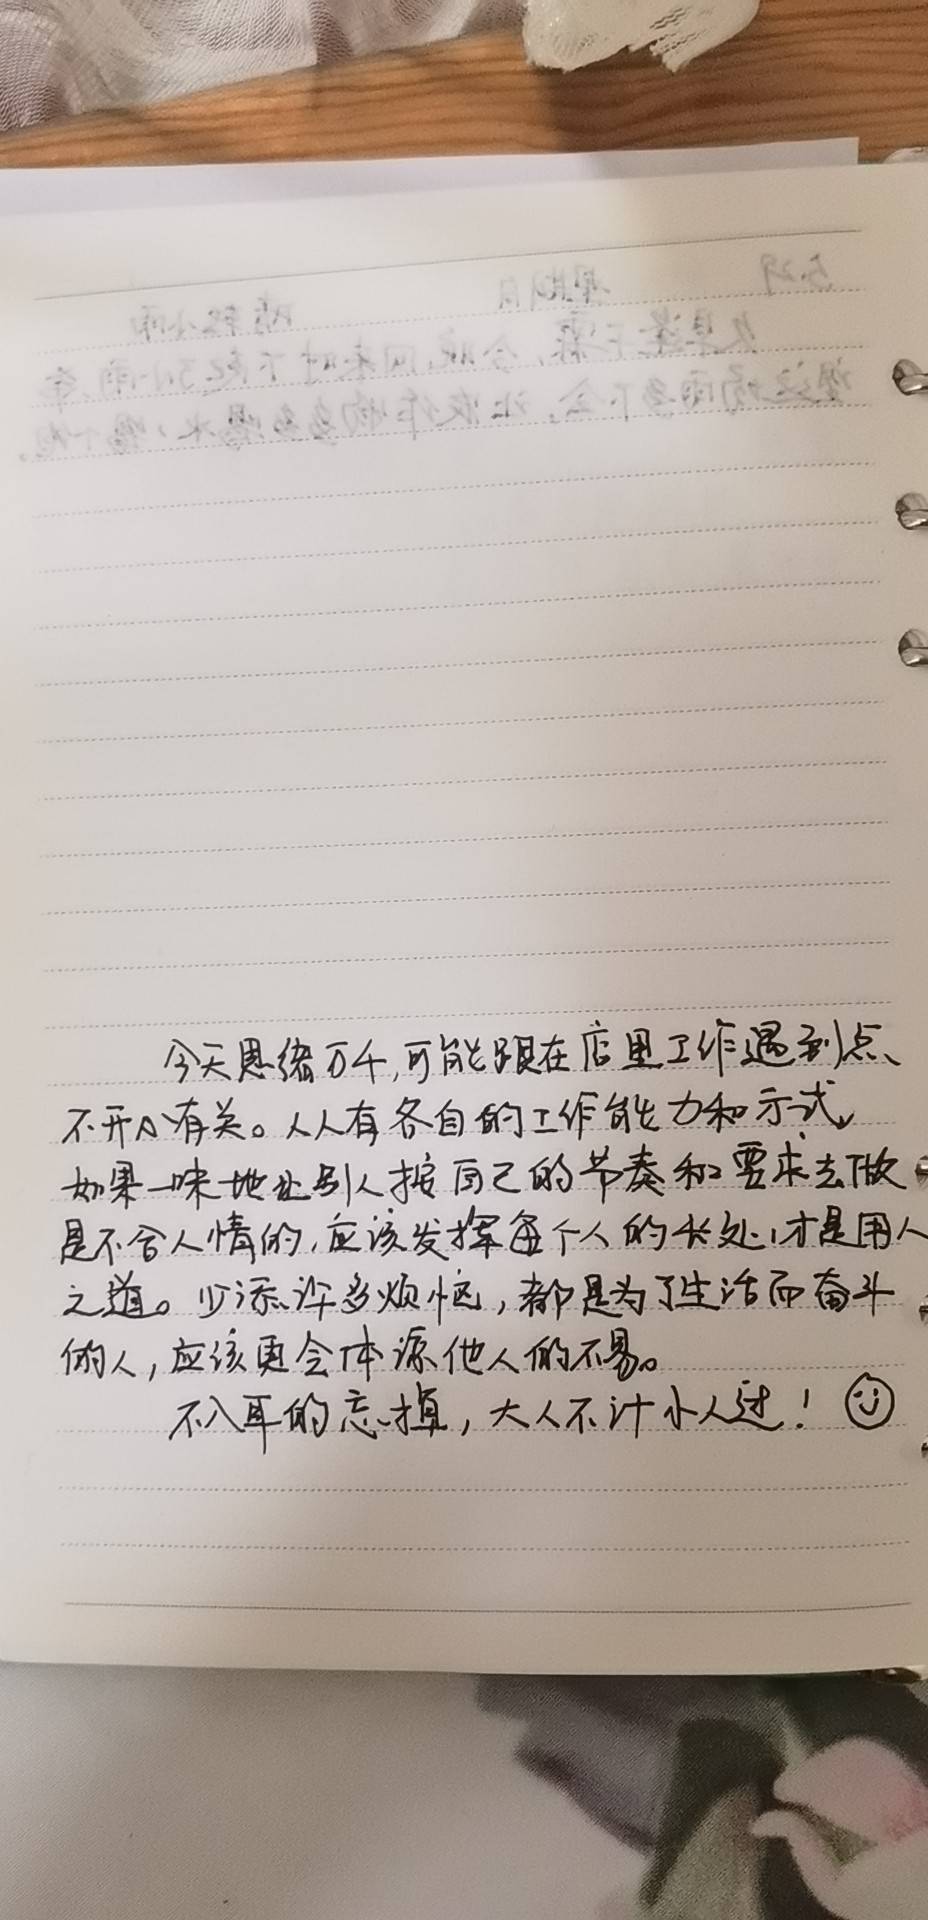 今天思绪万千,可能跟在店里工作遇到点、
不开心有关。人人有各自的工作能力和方式,
如果一味地让别人按自己的节奏和要求去做
是不合人情的,应该发挥每个人的长处,才是用人
之道。少添许多烦恼,都是为了生活而奋斗
的人,应该更会体谅他人的不易。
不入耳的忘掉,大人不计小人过!